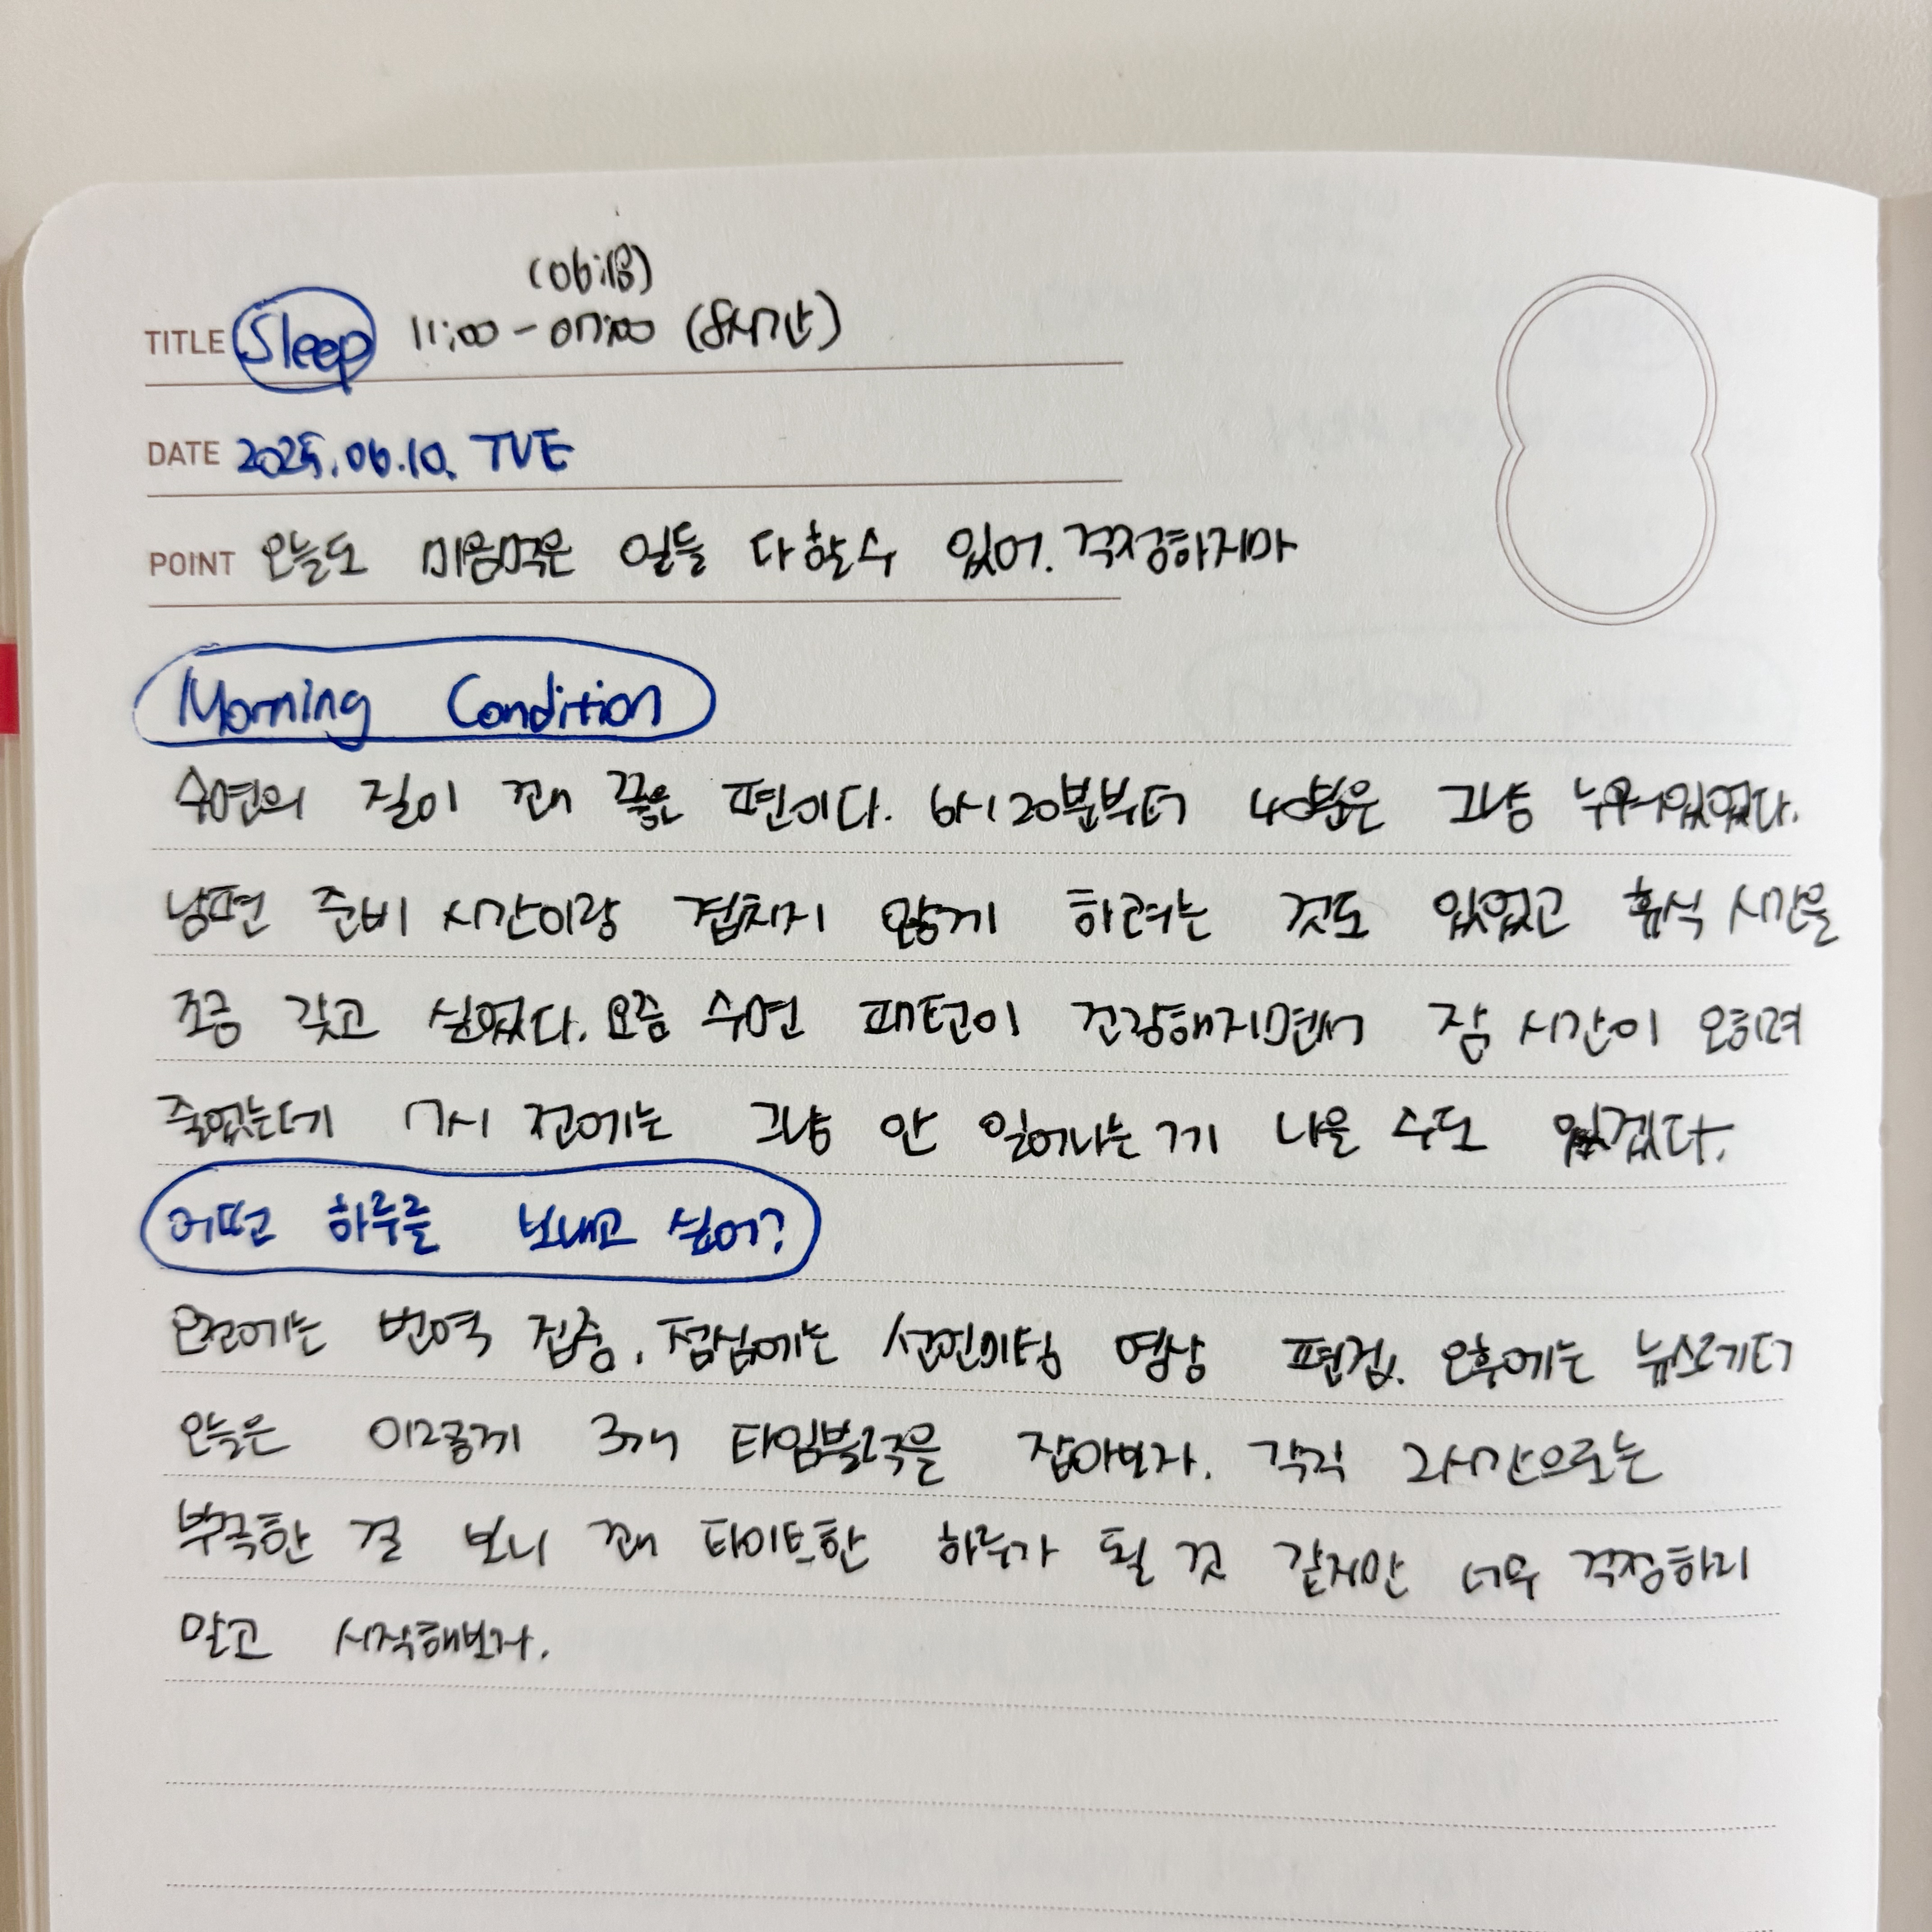 (06:18)
TITLE Sleep 11:00 - 07:00 (8시간)
DATE 2025.06.10. TUE
POINT 오늘도 마음먹은 일들 다 할 수 있어. 걱정하지마
Morning Condition
수면의 질이 꽤 좋은 편이다. 6시 20분부터 40분은 그냥 누워있었다.
남편 준비 시간이랑 겹치지 않게 하려는 것도 있었고 휴식 시간을
조금 갖고 싶었다. 요즘 수면 패턴이 건강해지면서 잠 시간이 오히려
줄었는데 7시 전에는 그냥 안 일어나는 게 나을 수도 있겠다.
어떤 하루를 보내고 싶어?
오전에는 번역 집중, 점심에는 영상 편집. 오후에는 뉴스레터
오늘은 이렇게 3개 타임블럭을 잡아보자. 각각 2시간으로는
부족한 걸 보니 꽤 타이트한 하루가 될 것 같지만 너무 걱정하지
말고 시작해보자.